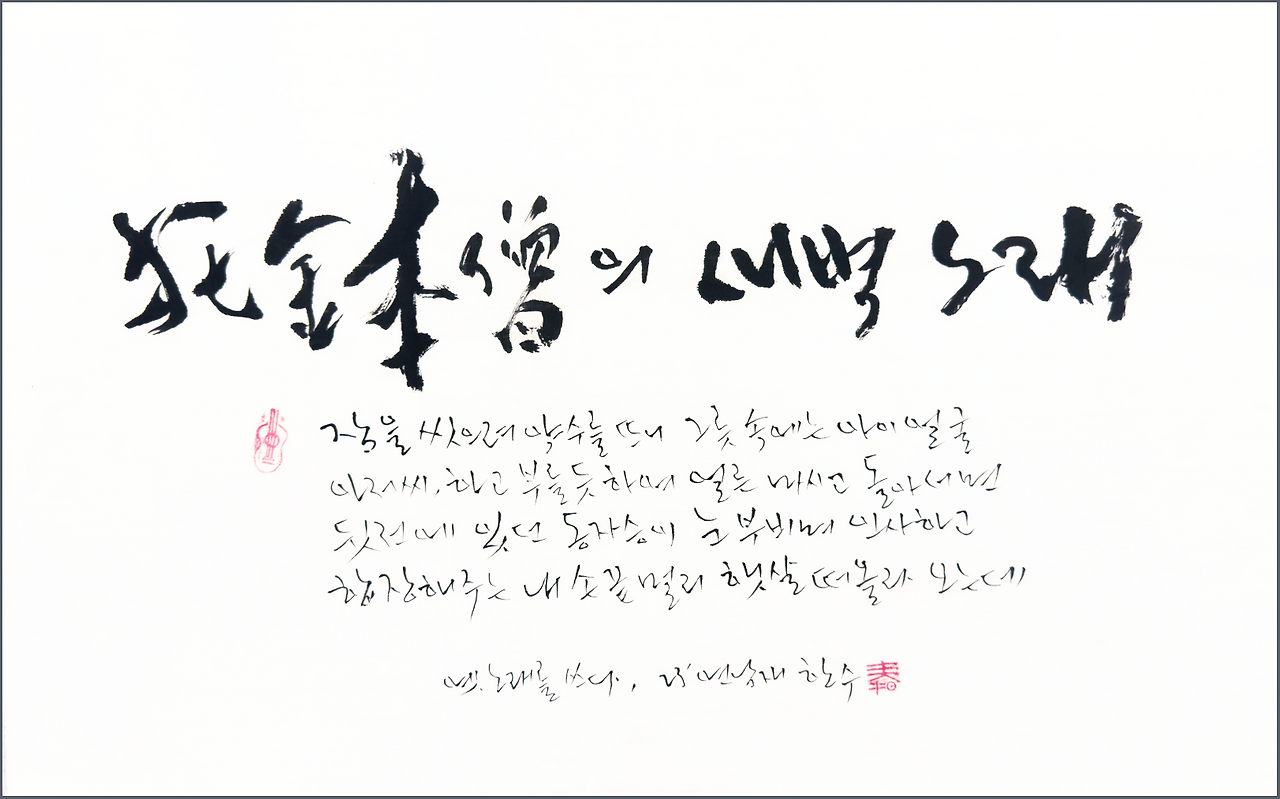 托鉢僧의 새벽 노래
잠을 씻으려 약수를 뜨니 그릇 속에는 아이 얼굴
아저씨, 하고 부를듯하여 얼른 마시고 돌아서면
뒷전에 있던 동자승이 눈 부비며 인사하고
합장해주는 내 손끝 멀리 햇살 떠올라 오는데
옛노래를 쓰다, 한수